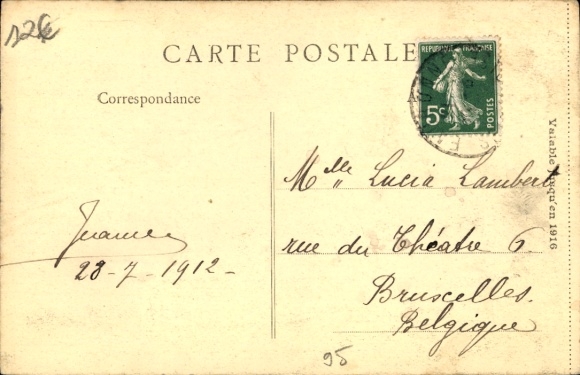 12€
CARTE POSTALE
REPUBLIQUE FRANÇAISE
5c
POSTES
Correspondance
Mlle Lucia Lambert
rue du Théatre 6
Bruxcelles.
Belgique
23-7-1912-
Valable jusqu'en 1916
95